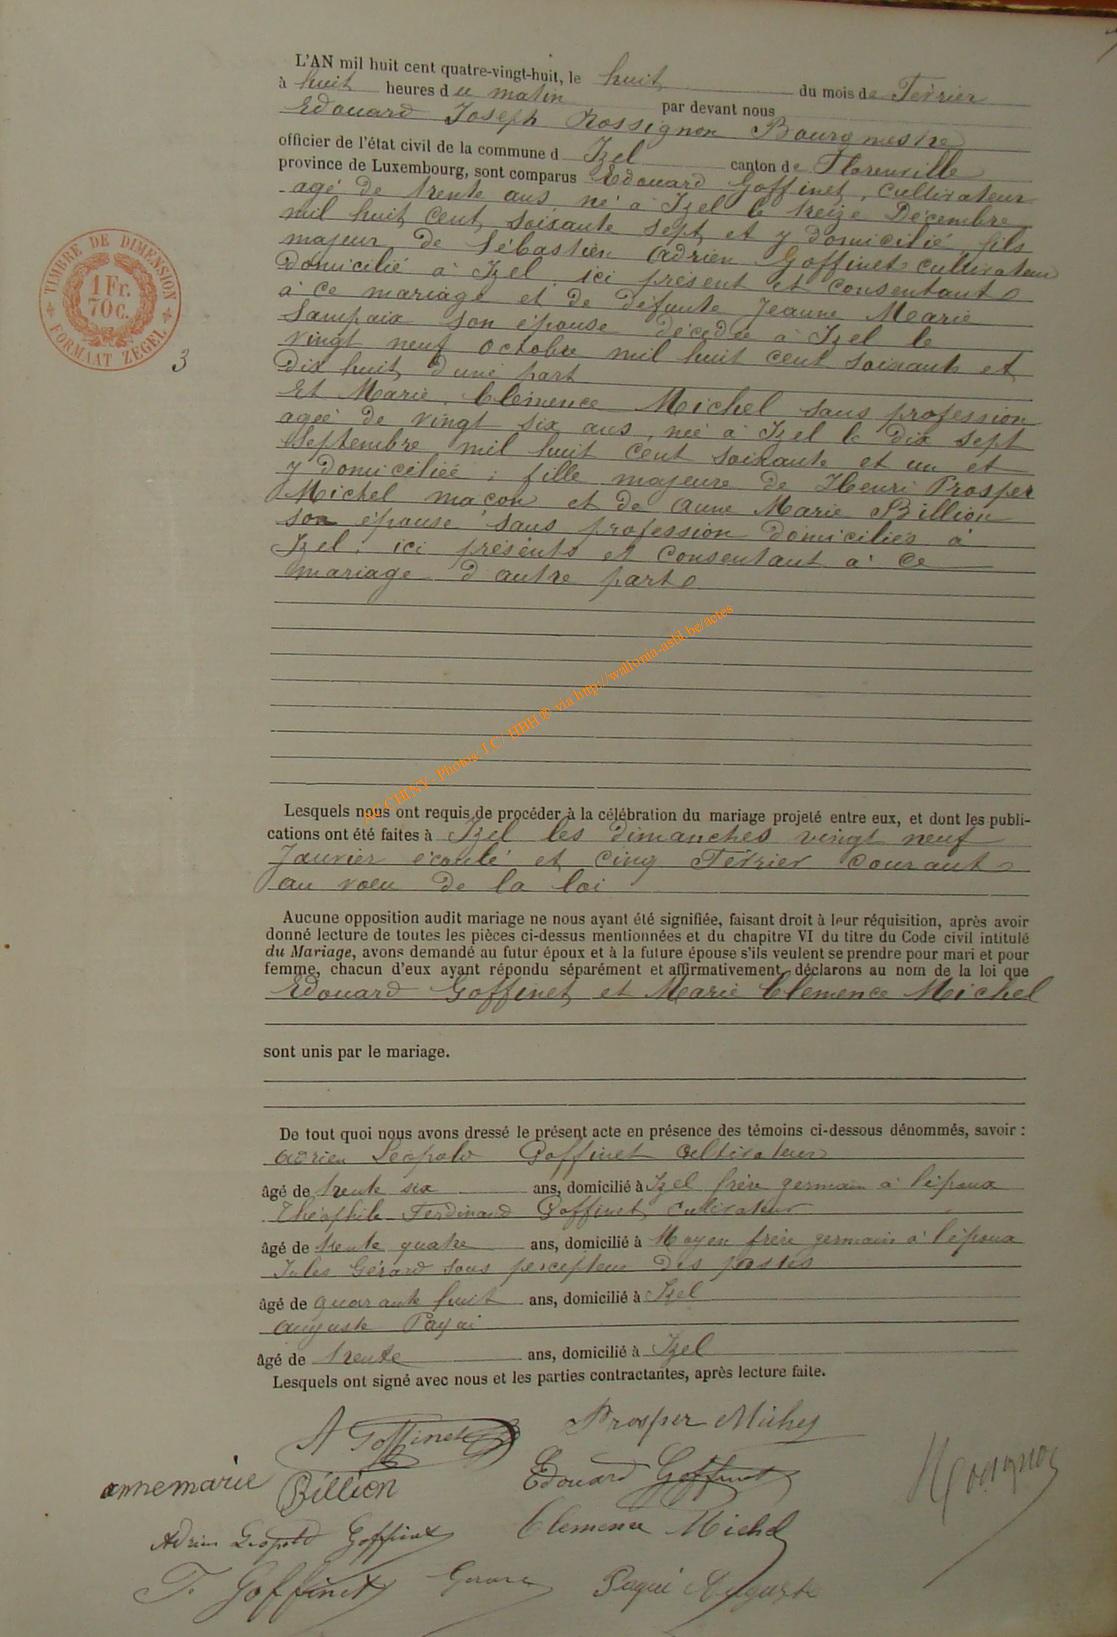 L'AN mil huit cent quatre-vingt-huit, le huit du mois de Février
à huit heures du matin par devant nous
Edouard Joseph Rossignon Bourgmestre
officier de l'état civil de la commune d Izel canton de Florenville
province de Luxembourg, sont comparus Edouard Goffinet, cultivateur
agé de trente ans, né à Izel le treize Décembre
mil huit cent soixante sept et y domicilié, fils
majeur de Sébastien Adrien Goffinet cultivateur
domicilié à Izel, ici présent et consentant
à ce mariage et de défunte Jeanne Marie
Lampaix son épouse décédée à Izel le
vingt neuf octobre mil huit cent soixante et
dix huit d'une part
Et Marie Clémence Michel sans profession
agée de vingt six ans, née à Izel le dix sept
Septembre mil huit cent soixante et un et
y domiciliée ; fille majeure de Henri Prosper
Michel maçon et de Anne Marie Billion
son épouse sans profession domiciliés à
Izel, ici présents et consentant à ce
mariage d'autre part
TIMBRE DE DIMENSION
1 Fr.
70 c.
FORMAAT ZEGEL
3
AC CHINY - Photos 1C / HBH ® via http://wallonia-asbl.be/actes
Lesquels nous ont requis de procéder à la célébration du mariage projeté entre eux, et dont les publi-
cations ont été faites à Izel les dimanches vingt neuf
Janvier écoulé et cinq Février courant
au voeu de la loi
Aucune opposition audit mariage ne nous ayant été signifiée, faisant droit à leur réquisition, après avoir
donné lecture de toutes les pièces ci-dessus mentionnées et du chapitre VI du titre du Code civil intitulé
du Mariage, avons demandé au futur époux et à la future épouse s'ils veulent se prendre pour mari et pour
femme, chacun d'eux ayant répondu séparément et affirmativement, déclarons au nom de la loi que
Edouard Goffinet et Marie Clemence Michel
sont unis par le mariage.
De tout quoi nous avons dressé le présent acte en présence des témoins ci-dessous dénommés, savoir :
Adrien Léopold Goffinet cultivateur
âgé de trente six ans, domicilié à Izel frère germain à l'époux
Théophile Ferdinand Goffinet cultivateur
âgé de trente quatre ans, domicilié à Moyen frère germain à l'époux
Jules Gérard sous percepteur des postes
âgé de quarante huit ans, domicilié à Izel
Auguste
âgé de trente ans, domicilié à Izel
Lesquels ont signé avec nous et les parties contractantes, après lecture faite.
A Goffinet Prosper Michel
annemarie Billion Edouard Goffinet
Adrien Léopold Goffinet Clemence Michel
T. Goffinet Gerard Auguste